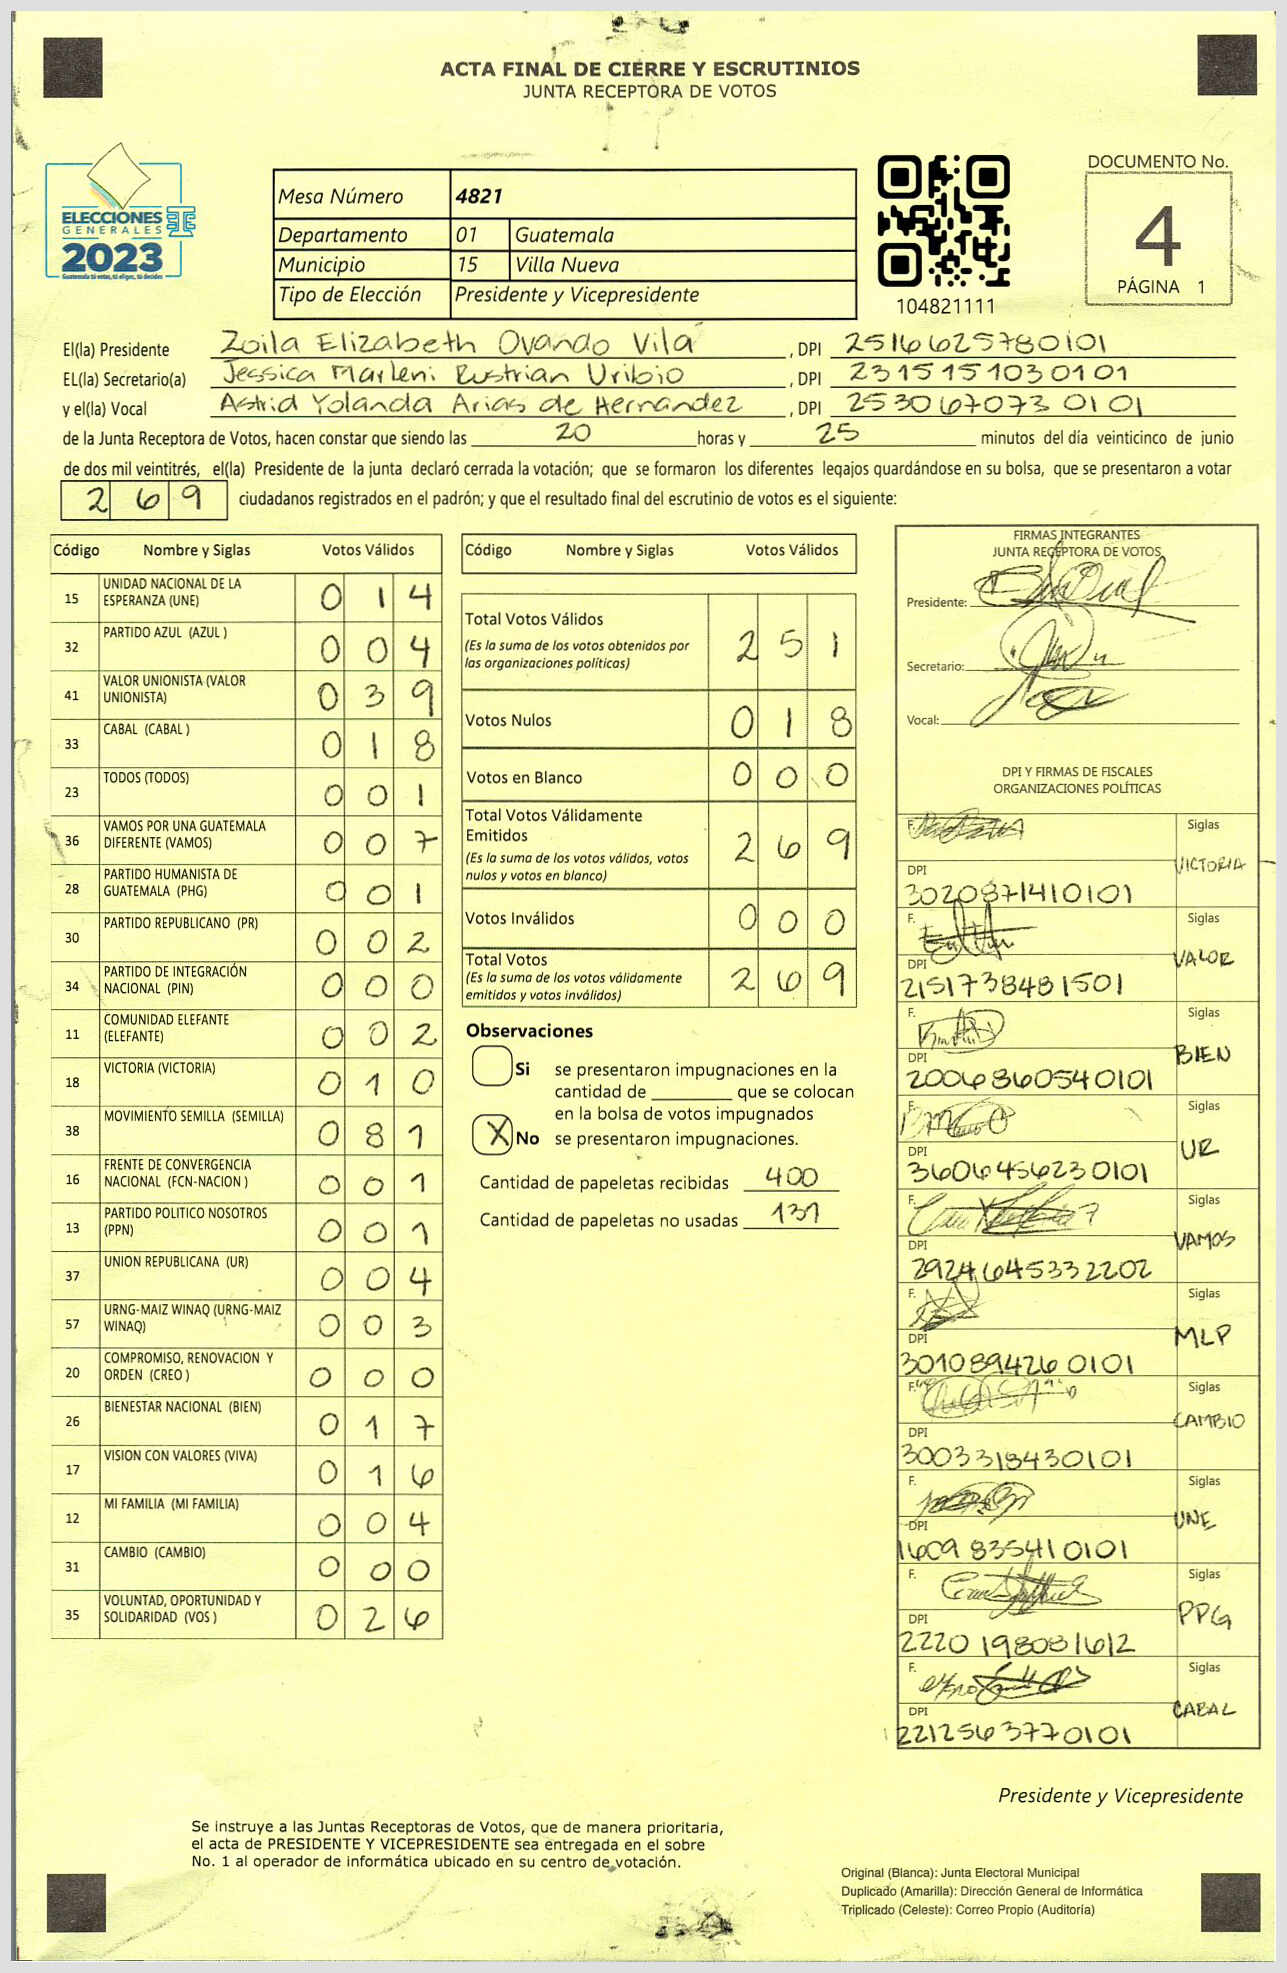 ACTA FINAL DE CIERRE Y ESCRUTINIOS
JUNTA RECEPTORA DE VOTOS
ELECCIONES
GENERALES
2023
Guatemala tú votas, tú eliges, tú decides
Mesa Número 4821
Departamento 01 Guatemala
Municipio 15 Villa Nueva
Tipo de Elección Presidente y Vicepresidente
104821111
DOCUMENTO No.
4
PÁGINA 1
El(la) Presidente Zoila Elizabeth Ovando Vila , DPI 2516625780101
EL(la) Secretario(a) Jessica Marleni Rustrian Uribio , DPI 2315151030101
y el(la) Vocal Astrid Yolanda Arias de Hernández , DPI 2530670730101
de la Junta Receptora de Votos, hacen constar que siendo las 20 horas y 25 minutos del día veinticinco de junio
de dos mil veintitrés, el(la) Presidente de la junta declaró cerrada la votación; que se formaron los diferentes legajos quardándose en su bolsa, que se presentaron a votar
269 ciudadanos registrados en el padrón; y que el resultado final del escrutinio de votos es el siguiente:
Código Nombre y Siglas Votos Válidos
15 UNIDAD NACIONAL DE LA ESPERANZA (UNE) 014
32 PARTIDO AZUL (AZUL ) 004
41 VALOR UNIONISTA (VALOR UNIONISTA) 039
33 CABAL (CABAL ) 018
23 TODOS (TODOS) 001
36 VAMOS POR UNA GUATEMALA DIFERENTE (VAMOS) 007
28 PARTIDO HUMANISTA DE GUATEMALA (PHG) 001
30 PARTIDO REPUBLICANO (PR) 002
34 PARTIDO DE INTEGRACIÓN NACIONAL (PIN) 000
11 COMUNIDAD ELEFANTE (ELEFANTE) 002
18 VICTORIA (VICTORIA) 010
38 MOVIMIENTO SEMILLA (SEMILLA) 081
16 FRENTE DE CONVERGENCIA NACIONAL (FCN-NACION ) 001
13 PARTIDO POLITICO NOSOTROS (PPN) 001
37 UNION REPUBLICANA (UR) 004
57 URNG-MAIZ WINAQ (URNG-MAIZ WINAQ) 003
20 COMPROMISO, RENOVACION Y ORDEN (CREO ) 000
26 BIENESTAR NACIONAL (BIEN) 017
17 VISION CON VALORES (VIVA) 016
12 MI FAMILIA (MI FAMILIA) 004
31 CAMBIO (CAMBIO) 000
35 VOLUNTAD, OPORTUNIDAD Y SOLIDARIDAD (VOS ) 026
Código Nombre y Siglas Votos Válidos
Total Votos Válidos 251
(Es la suma de los votos obtenidos por
las organizaciones políticas)
Votos Nulos 018
Votos en Blanco 000
Total Votos Válidamente
Emitidos 269
(Es la suma de los votos válidos, votos
nulos y votos en blanco)
Votos Inválidos 000
Total Votos 269
(Es la suma de los votos válidamente
emitidos y votos inválidos)
Observaciones
Si se presentaron impugnaciones en la
cantidad de ________ que se colocan
en la bolsa de votos impugnados
X No se presentaron impugnaciones.
Cantidad de papeletas recibidas 400
Cantidad de papeletas no usadas 131
FIRMAS INTEGRANTES
JUNTA RECEPTORA DE VOTOS
Presidente:
Secretario:
Vocal:
DPI Y FIRMAS DE FISCALES
ORGANIZACIONES POLÍTICAS
F. Siglas
VICTORIA
DPI
3020871410101
F. Siglas
VALOR
DPI
2151738481501
F. Siglas
BIEN
DPI
2006860540101
F. Siglas
UR
DPI
3606456230101
F. Siglas
VAMOS
DPI
2924645332202
F. Siglas
MLP
DPI
3010894260101
F. Siglas
CAMBIO
DPI
3003318430101
F. Siglas
UNE
DPI
1609835410101
F. Siglas
PPG
DPI
2220198081612
F. Siglas
CABAL
DPI
2212563770101
Presidente y Vicepresidente
Se instruye a las Juntas Receptoras de Votos, que de manera prioritaria,
el acta de PRESIDENTE Y VICEPRESIDENTE sea entregada en el sobre
No. 1 al operador de informática ubicado en su centro de votación.
Original (Blanca): Junta Electoral Municipal
Duplicado (Amarilla): Dirección General de Informática
Triplicado (Celeste): Correo Propio (Auditoría)